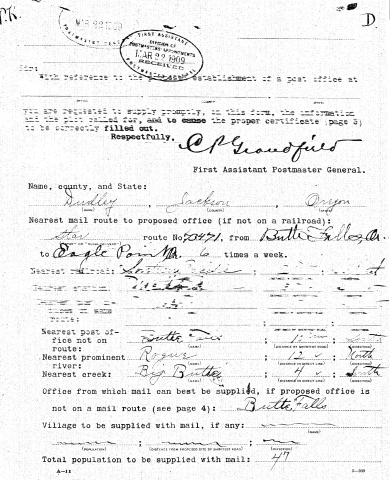 P.K. D.
MAR 22 1909
FIRST ASSISTANT
DIVISION OF
POSTMASTERS' APPOINTMENTS
MAR 22 1909
RECEIVED
POSTMASTER GENERAL
Sir:
With reference to the establishment of a post office at
you are requested to supply promptly, on this form, the information
and the called for, and to cause the proper certificate (page 3)
to be correctly filled out.
Respectfully,
C P Grandfield
First Assistant Postmaster General.
Name, county, and State:
Dudley Jackson Oregon
Nearest mail route to proposed office (if not on a railroad):
Star route No. 73471, from Butte Falls, Or.
to Eagle Point Or. 6 times a week.
Nearest railroad:
route:
Nearest post of-
fice not on Butte Falls
route:
Nearest prominent Rogue 12 North
river:
Nearest creek: Big Butte 4 South
Office from which mail can best be supplied, if proposed office is
not on a mail route (see page 4): Butte Falls
Village to be supplied with mail, if any:
(NAME)
(POPULATION) (DISTANCE FROM PROPOSED SITE BY SHORTEST ROAD) (DIRECTION)
Total population to be supplied with mail: 47